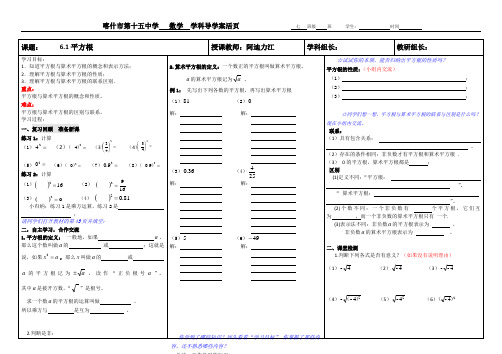 喀什市第十五中学 数学 学科导学案活页 七 班级 班 学生: 时间
课题: 6.1平方根 授课教师:阿迪力江 学科组长: 教研组长:
学习目标:
1.知道平方根与算术平方根的概念和表示方法;
2.理解平方根与算术平方根的性质;
3.理解平方根与算术平方根的联系区别.
重点:
平方根与算术平方根的概念和性质。
难点:
平方根与算术平方根的区别与联系。
学习过程:
一、复习回顾 准备新课
练习1:计算
练习2:计算
(1)( )²=16 (2)( )²=9/16
(3)( )²=0 (4)( )²=0.81
小归纳:练习1是乘方运算,练习2是
请同学们打开教材的第45页并填空:
二、自主学习,合作交流
1.平方根的定义:一般地,如果 a,
那么这个数叫做a的 或 ;这就是
说,如果x²=a,那么x叫做a的 或
a的平方根记为±√a,读作“正负根号a”,
其中a是被开方数,“√”是根号。
求一个数a的平方根的运算叫做 ,
所以乘方与 是互为 .
2.判断是非:
3.算术平方根的定义:一个数正的平方根叫做算术平方根。
a的算术平方根记为√a 。
例1:先写出下列各数的平方根,再写出算术平方根
(1)81 (2)0
解: 解:
(3)0.36 (4)4/25
解: 解:
(5)5 (6)-49
解: 解:
☆试试你的本领,能否归纳出平方根的性质吗?
平方根的性质:(小组内交流)
(1) ;
(2)
(3)
☆同学们想一想:平方根与算术平方根的联系与区别是什么吗?
请在小组内交流。
联系:
(1)具有包含关系: 。
(2)存在的条件相同:非负数才有平方根和算术平方根 。
(3) 0的平方根,算术平方根都是
区别
(1)定义不同:“平方根: ”,
“ 算术平方根: ”;
(2)个数不同:一个非负数有 个平方根,它们互
为 ;而一个非负数的算术平方根只有一个.
(3)表示法不同:非负数a的平方根表示为 ,
非负数a的算术平方根表示为 .
二、课堂检测
1.判断下列各式是否有意义?(如果没有说明理由)